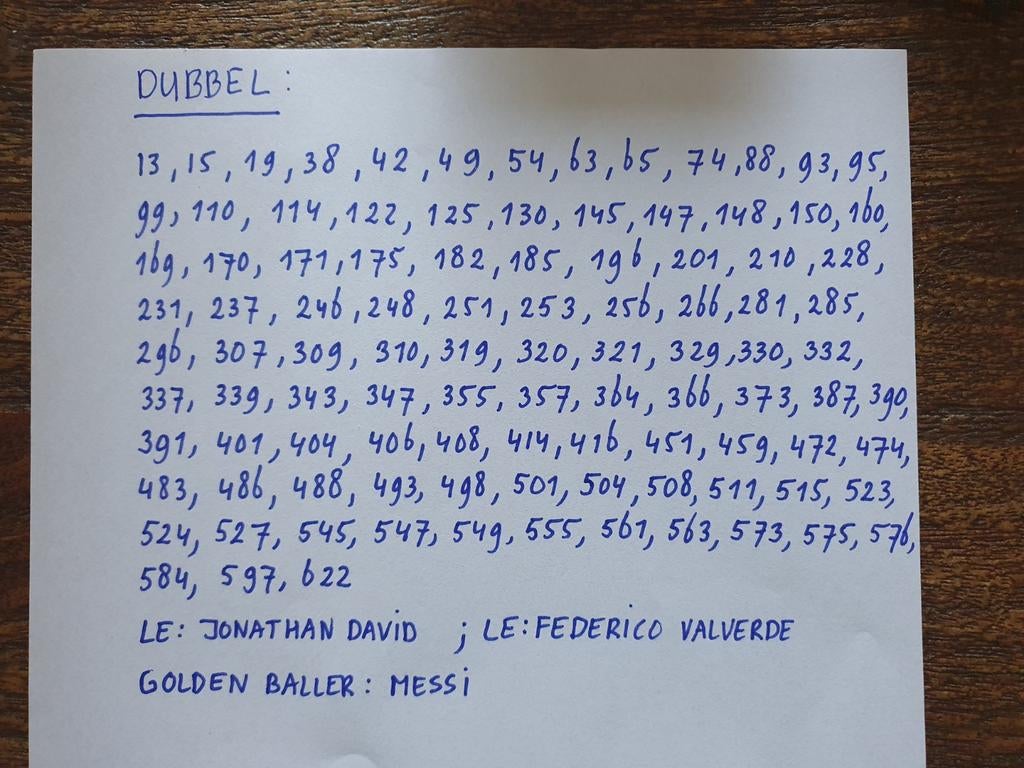 DUBBEL:
13, 15, 19, 38, 42, 49, 54, 63, 65, 74, 88, 93, 95,
99, 110, 114, 122, 125, 130, 145, 147, 148, 150, 160,
169, 170, 171, 175, 182, 185, 196, 201, 210, 228,
231, 237, 246, 248, 251, 253, 256, 266, 281, 285,
296, 307, 309, 310, 319, 320, 321, 329, 330, 332,
337, 339, 343, 347, 355, 357, 364, 366, 373, 387, 390,
391, 401, 404, 406, 408, 414, 416, 451, 459, 472, 474,
483, 486, 488, 493, 498, 501, 504, 508, 511, 515, 523,
524, 527, 545, 547, 549, 555, 561, 563, 573, 575, 576,
584, 597, 622
LE: JONATHAN DAVID ; LE: FEDERICO VALVERDE
GOLDEN BALLER: MESSI